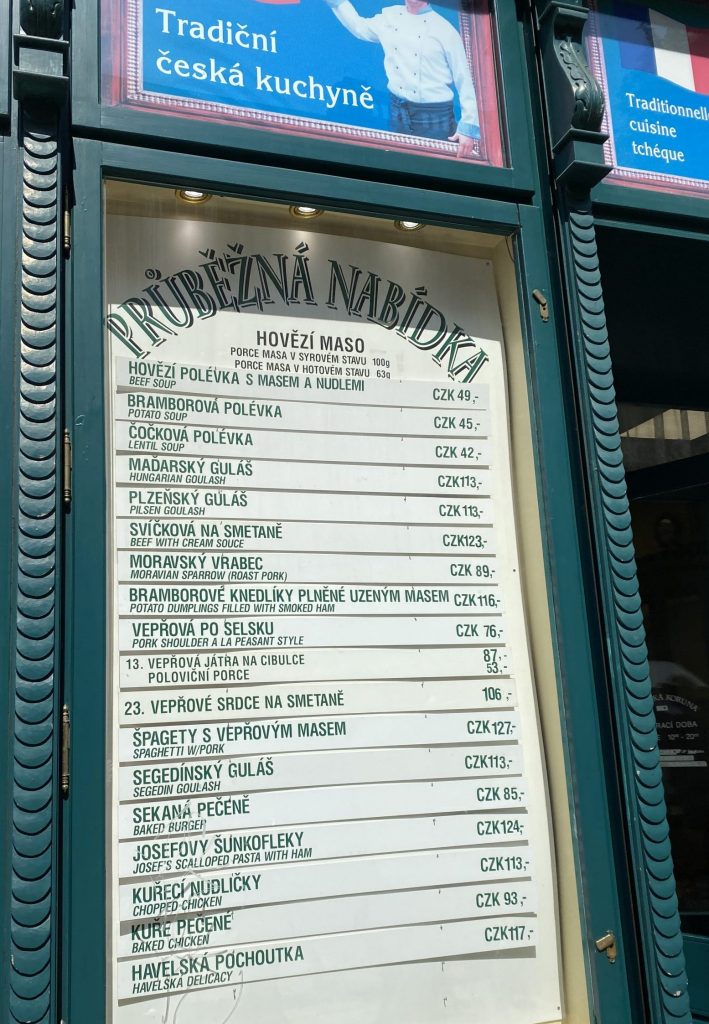 Tradiční
česká kuchyně
Traditionnelle
cuisine
tchéque
PRŮBĚŽNÁ NABÍDKA
HOVĚZÍ MASO
PORCE MASA V SYROVÉM STAVU 100g
PORCE MASA V HOTOVÉM STAVU 63g
HOVĚZÍ POLÉVKA S MASEM A NUDLEMI CZK 49,-
BEEF SOUP
BRAMBOROVÁ POLÉVKA CZK 45,-
POTATO SOUP
ČOČKOVÁ POLÉVKA CZK 42,-
LENTIL SOUP
MAĎARSKÝ GULÁŠ CZK113,-
HUNGARIAN GOULASH
PLZEŇSKÝ GULÁŠ CZK 113,-
PILSEN GOULASH
SVÍČKOVÁ NA SMETANĚ CZK123,-
BEEF WITH CREAM SOUCE
MORAVSKÝ VRABEC CZK 89,-
MORAVIAN SPARROW (ROAST PORK)
BRAMBOROVÉ KNEDLÍKY PLNĚNÉ UZENÝM MASEM CZK116,-
POTATO DUMPLINGS FILLED WITH SMOKED HAM
VEPŘOVÁ PO SELSKU CZK 76,-
PORK SHOULDER A LA PEASANT STYLE
13. VEPŘOVÁ JÁTRA NA CIBULCE 87,-
POLOVIČNÍ PORCE 53,-
23. VEPŘOVÉ SRDCE NA SMETANĚ 106,-
ŠPAGETY S VEPŘOVÝM MASEM CZK127,-
SPAGHETTI W/PORK
SEGEDÍNSKÝ GULÁŠ CZK113,-
SEGEDIN GOULASH
SEKANÁ PEČENĚ CZK 85,-
BAKED BURGER
JOSEFOVY ŠUNKOFLEKY CZK124,-
JOSEF'S SCALLOPED PASTA WITH HAM
KUŘECÍ NUDLIČKY CZK113,-
CHOPPED CHICKEN
KUŘE PEČENÉ CZK 93,-
BAKED CHICKEN
HAVELSKÁ POCHOUTKA CZK117,-
HAVELSKA DELICACY
KORUNA
DOBA